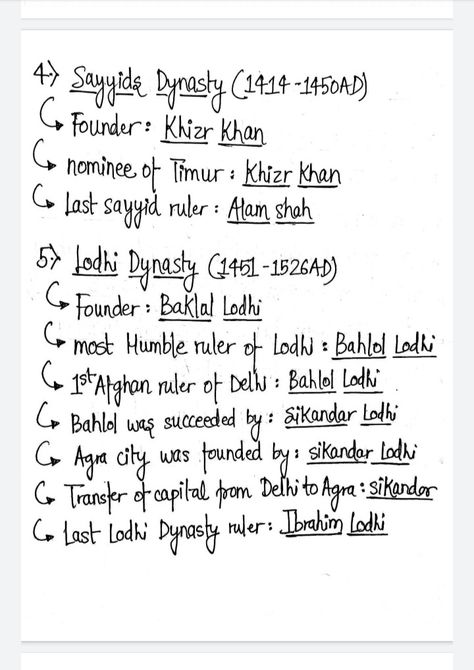 4.> Sayyids Dynasty (1414-1450AD)
↳ Founder: Khizr Khan
↳ nominee of Timur: Khizr Khan
↳ Last sayyid ruler: Alam shah
5.> Lodhi Dynasty (1451-1526AD)
↳ Founder: Baklal Lodhi
↳ most Humble ruler of Lodhi: Bahlol Lodhi
↳ 1st Afghan ruler of Delhi: Bahlol Lodhi
↳ Bahlol was succeeded by: Sikandar Lodhi
↳ Agra city was founded by: sikandar Lodhi
↳ Transfer of capital from Delhi to Agra: sikandar
↳ Last Lodhi Dynasty ruler: Ibrahim Lodhi